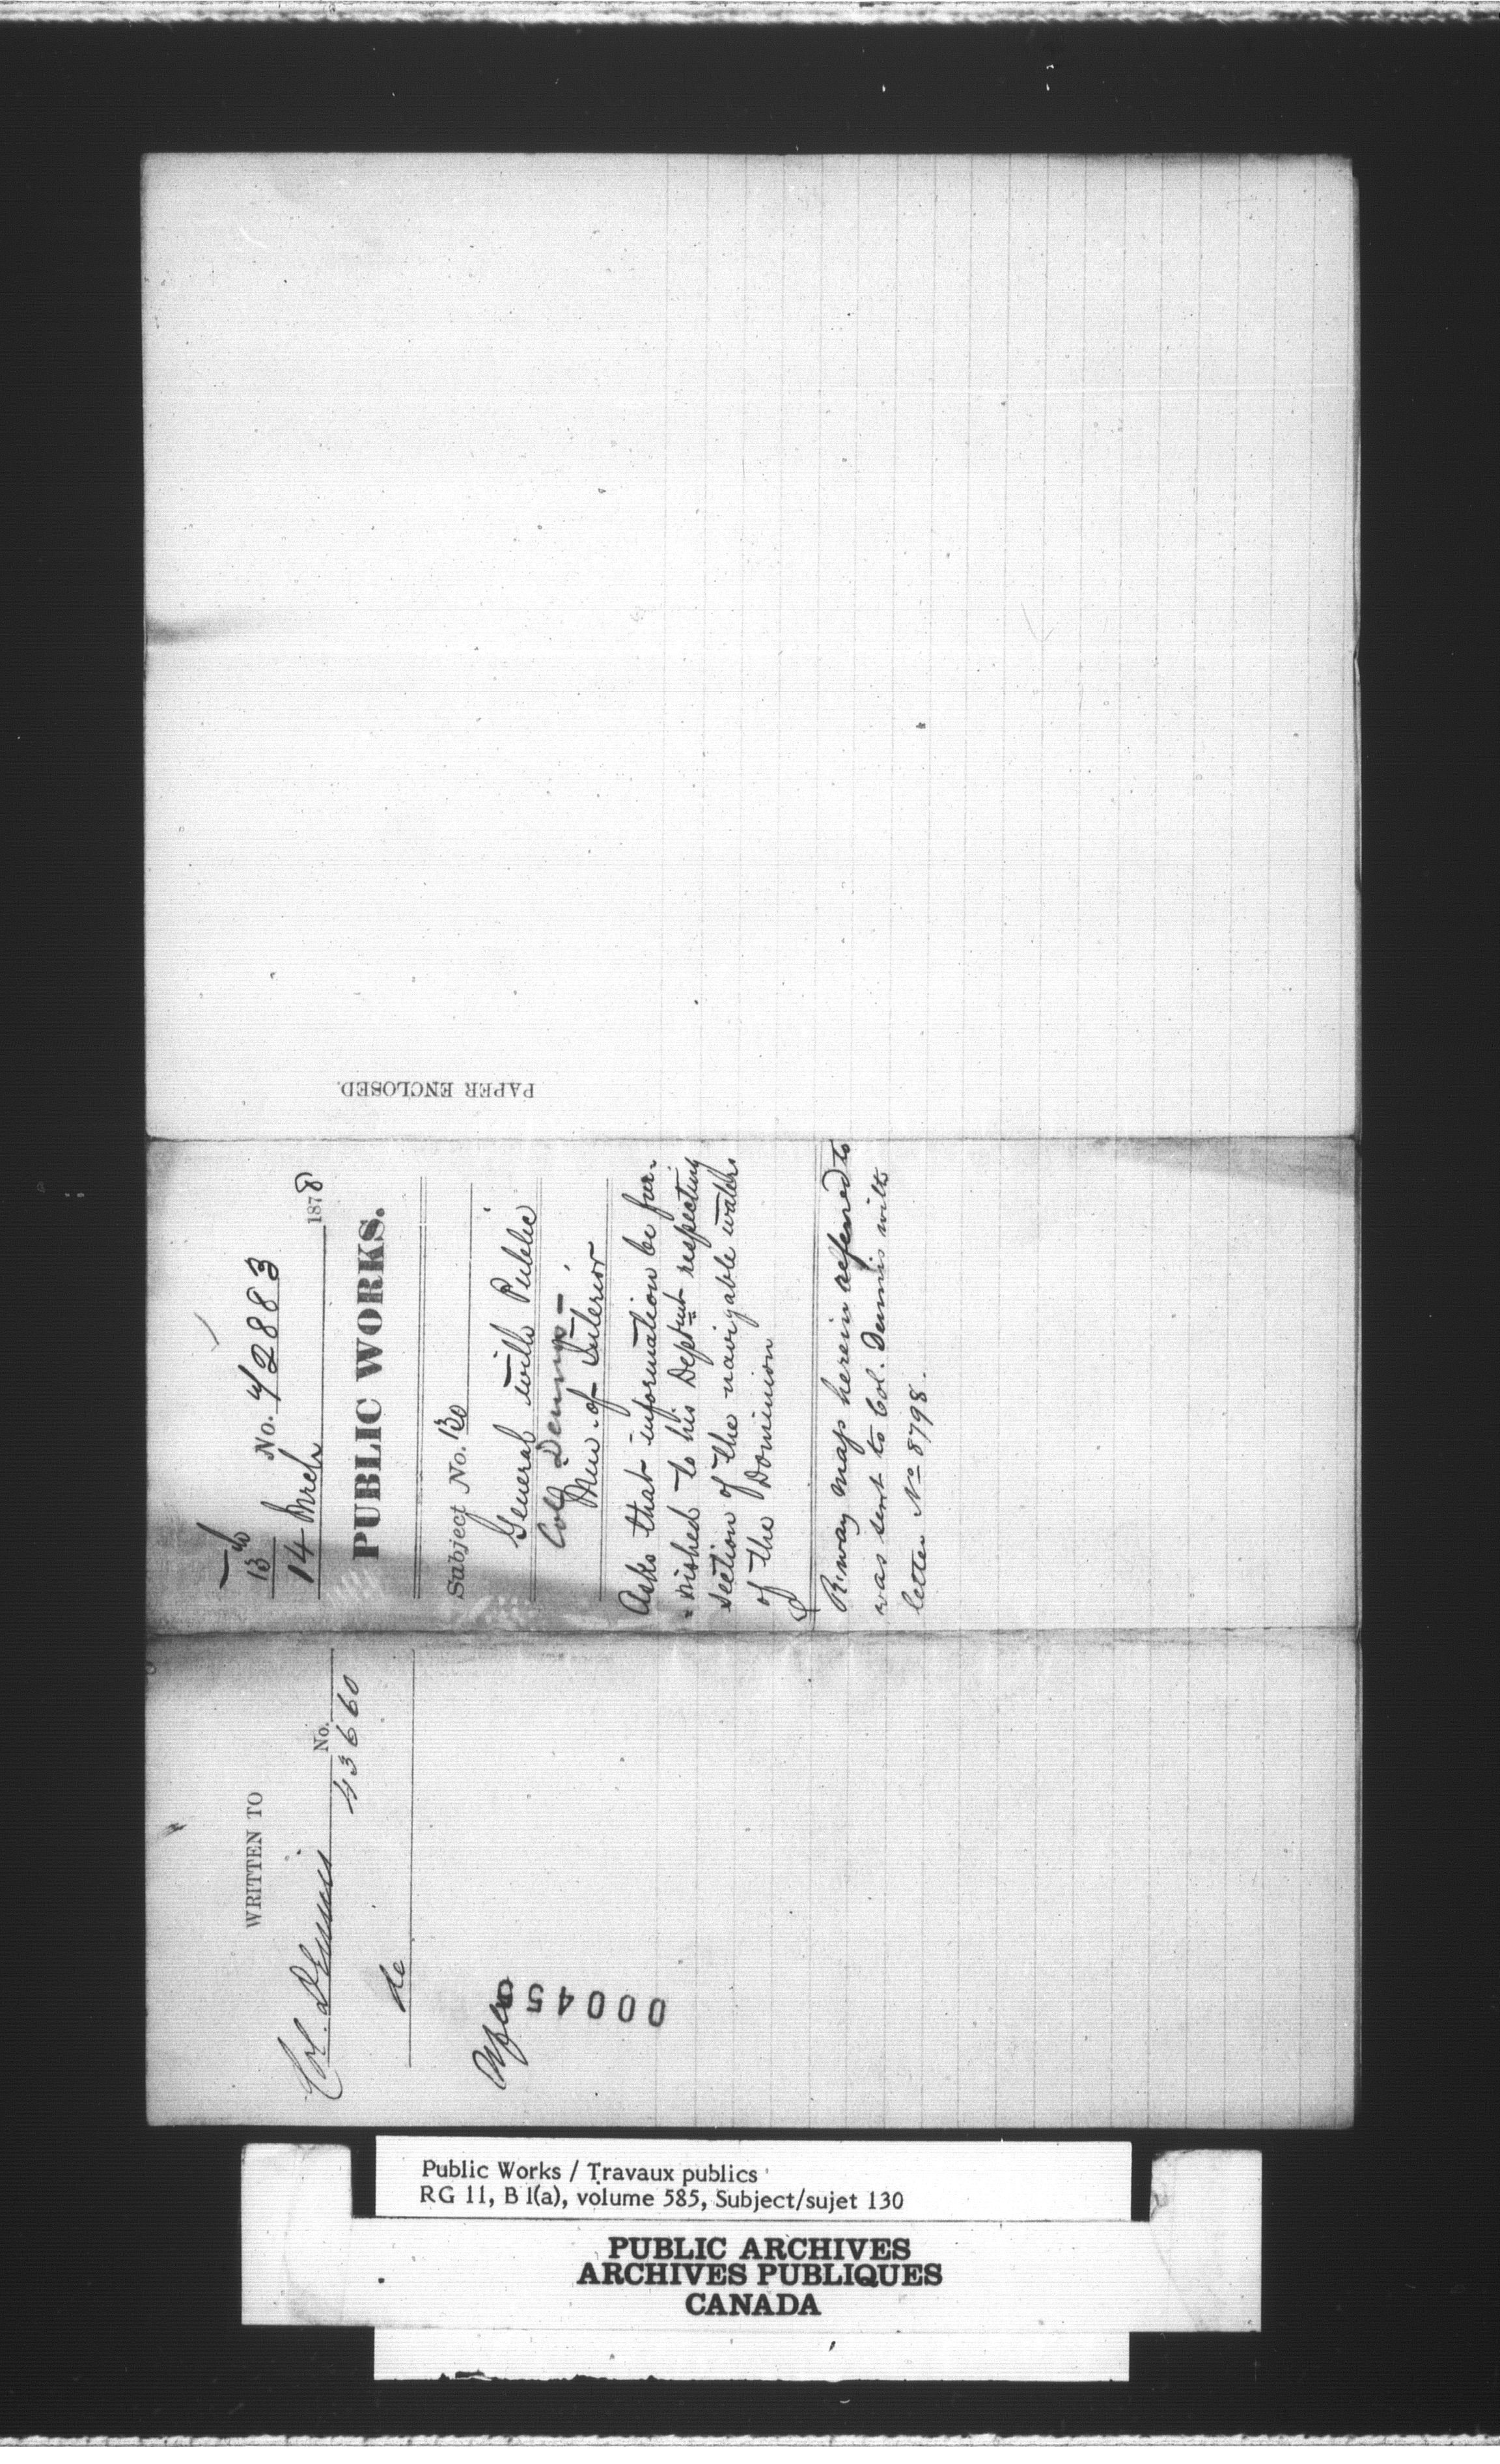 PAPER ENCLOSED.
13
No. 72883
14 March 1878
PUBLIC WORKS.
Subject No. 130
General with Public
Col Dennis
Min. of Interior
Asks that information be fur-
-nished to his Deptmt respecting
section of the navigable waters
of the Dominion
R.way map herein referred to
was sent to Col. Dennis with
letter No 8798.
WRITTEN TO
No.
Col. Dennis
43660
000450
Public Works / Travaux publics
RG 11, B 1(a), volume 585, Subject/sujet 130
PUBLIC ARCHIVES
ARCHIVES PUBLIQUES
CANADA